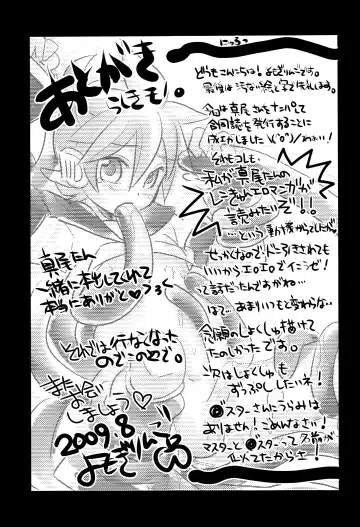 あとがき
うきそ!。
にっちっ
どうもこんにちは!よもぎりんごです。
最後は汚ない絵と字で失礼します。
今回は真尾さんをナンパして
合同誌を発行することに
成功しました \(^o^)/ わぁい!
それもコレも
私が真尾たんの
しーきゅんエロマンガが
読みたいぞ!!
…という動機からでしたが
せっかくなので、ドン引きされても
いいからエロエロでイこうぜ!
って話だったんですがね…
はて… あまりいつもと変わらな…
念願のしょくしゅ描けて
たのしかったです。
次はしょくしゅも
ずっぷししたいネ!
スターさんにうらみは
ありません!ごめんなさい!
マスターと スターって名前が
似てたからさ!
真尾たん
一緒に本出してくれて
本当にありがと♡
それでは行なくなった
のでこの辺で。
また会い
しましょう♡
2009.8
よもぎりんご